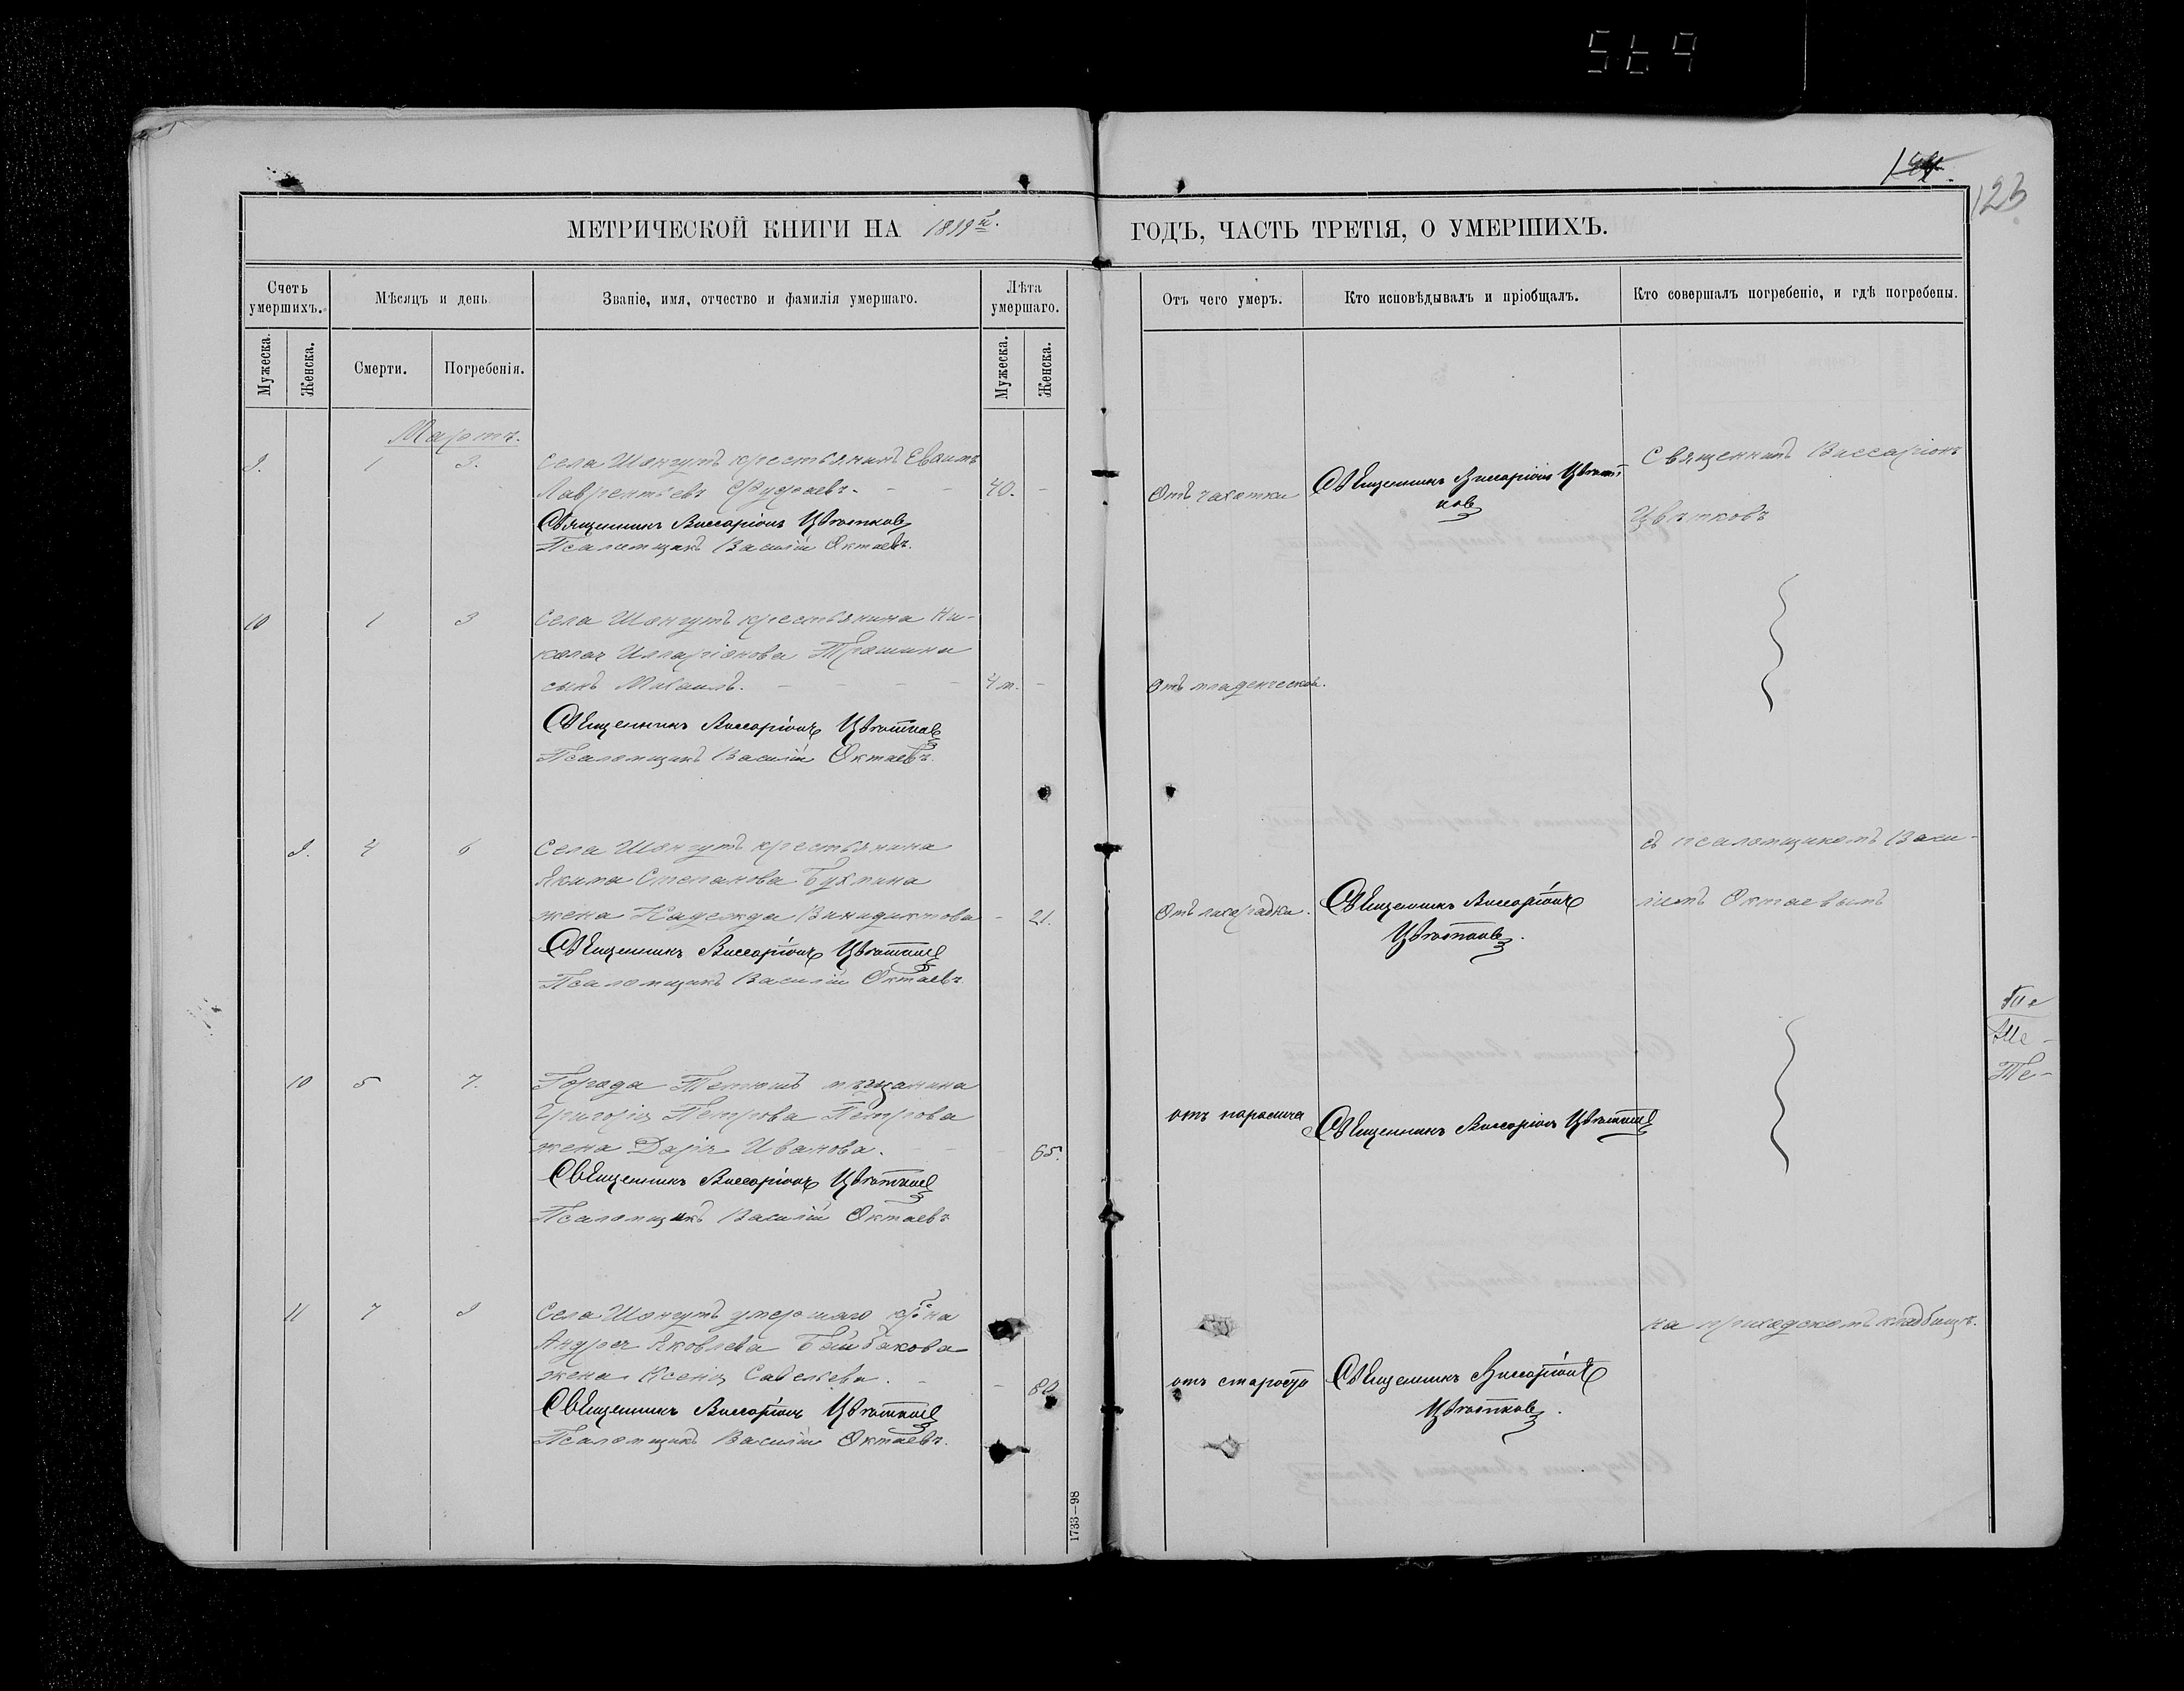 569
123
МЕТРИЧЕСКОЙ КНИГИ НА 1899й.
ГОДЪ, ЧАСТЬ ТРЕТІЯ, О УМЕРШИХЪ.
Счетъ умершихъ.
Мѣсяцъ и день
Званіе, имя, отчество и фамилія умершаго.
Лѣта умершаго.
Отъ чего умеръ.
Кто исповѣдывалъ и пріобщалъ.
Кто совершалъ погребеніе, и гдѣ погребены.
Мужеска.
Женска.
Смерти.
Погребенія.
Мужеска.
Женска.
Мартъ.
9. 1 3. Села Шонгутъ крестьянинъ
Лаврентьевъ 40.
Отъ чахотки
Священникъ Виссаріонъ Цвѣтковъ
Священникъ Виссаріонъ
Цвѣтковъ
Священникъ Виссаріонъ Цвѣтковъ
Псаломщикъ Василій Октаевъ.
10 1 3 Села Шонгутъ крестьянина Ни-
колая Илларіонова Трошина
сынъ Михаилъ. 4 м.
Отъ младенческой.
Священникъ Виссаріонъ Цвѣтковъ
Псаломщикъ Василій Октаевъ.
9. 4 6 Села Шонгутъ крестьянина
Якима Степанова Бухмина
жена Надежда Винидиктова 21.
Отъ лихорадки.
Священникъ Виссаріонъ
Цвѣтковъ.
съ псаломщикомъ Васи-
ліемъ Октаевымъ
Священникъ Виссаріонъ Цвѣтковъ
Псаломщикъ Василій Октаевъ.
10 5 7. Города Тетюшъ мѣщанина
Григорія Петрова Петрова
жена Дарія Иванова. 65.
отъ паралича
Священникъ Виссаріонъ Цвѣтковъ
Священникъ Виссаріонъ Цвѣтковъ
Псаломщикъ Василій Октаевъ
11 7 9 Села Шонгутъ умершаго кр-на
Андрея Яковлева Байбакова
жена Ксенія Савельева. 80
отъ старости
Священникъ Виссаріонъ
Цвѣтковъ.
на приходскомъ кладбищѣ.
Священникъ Виссаріонъ Цвѣтковъ
Псаломщикъ Василій Октаевъ.
1733—98